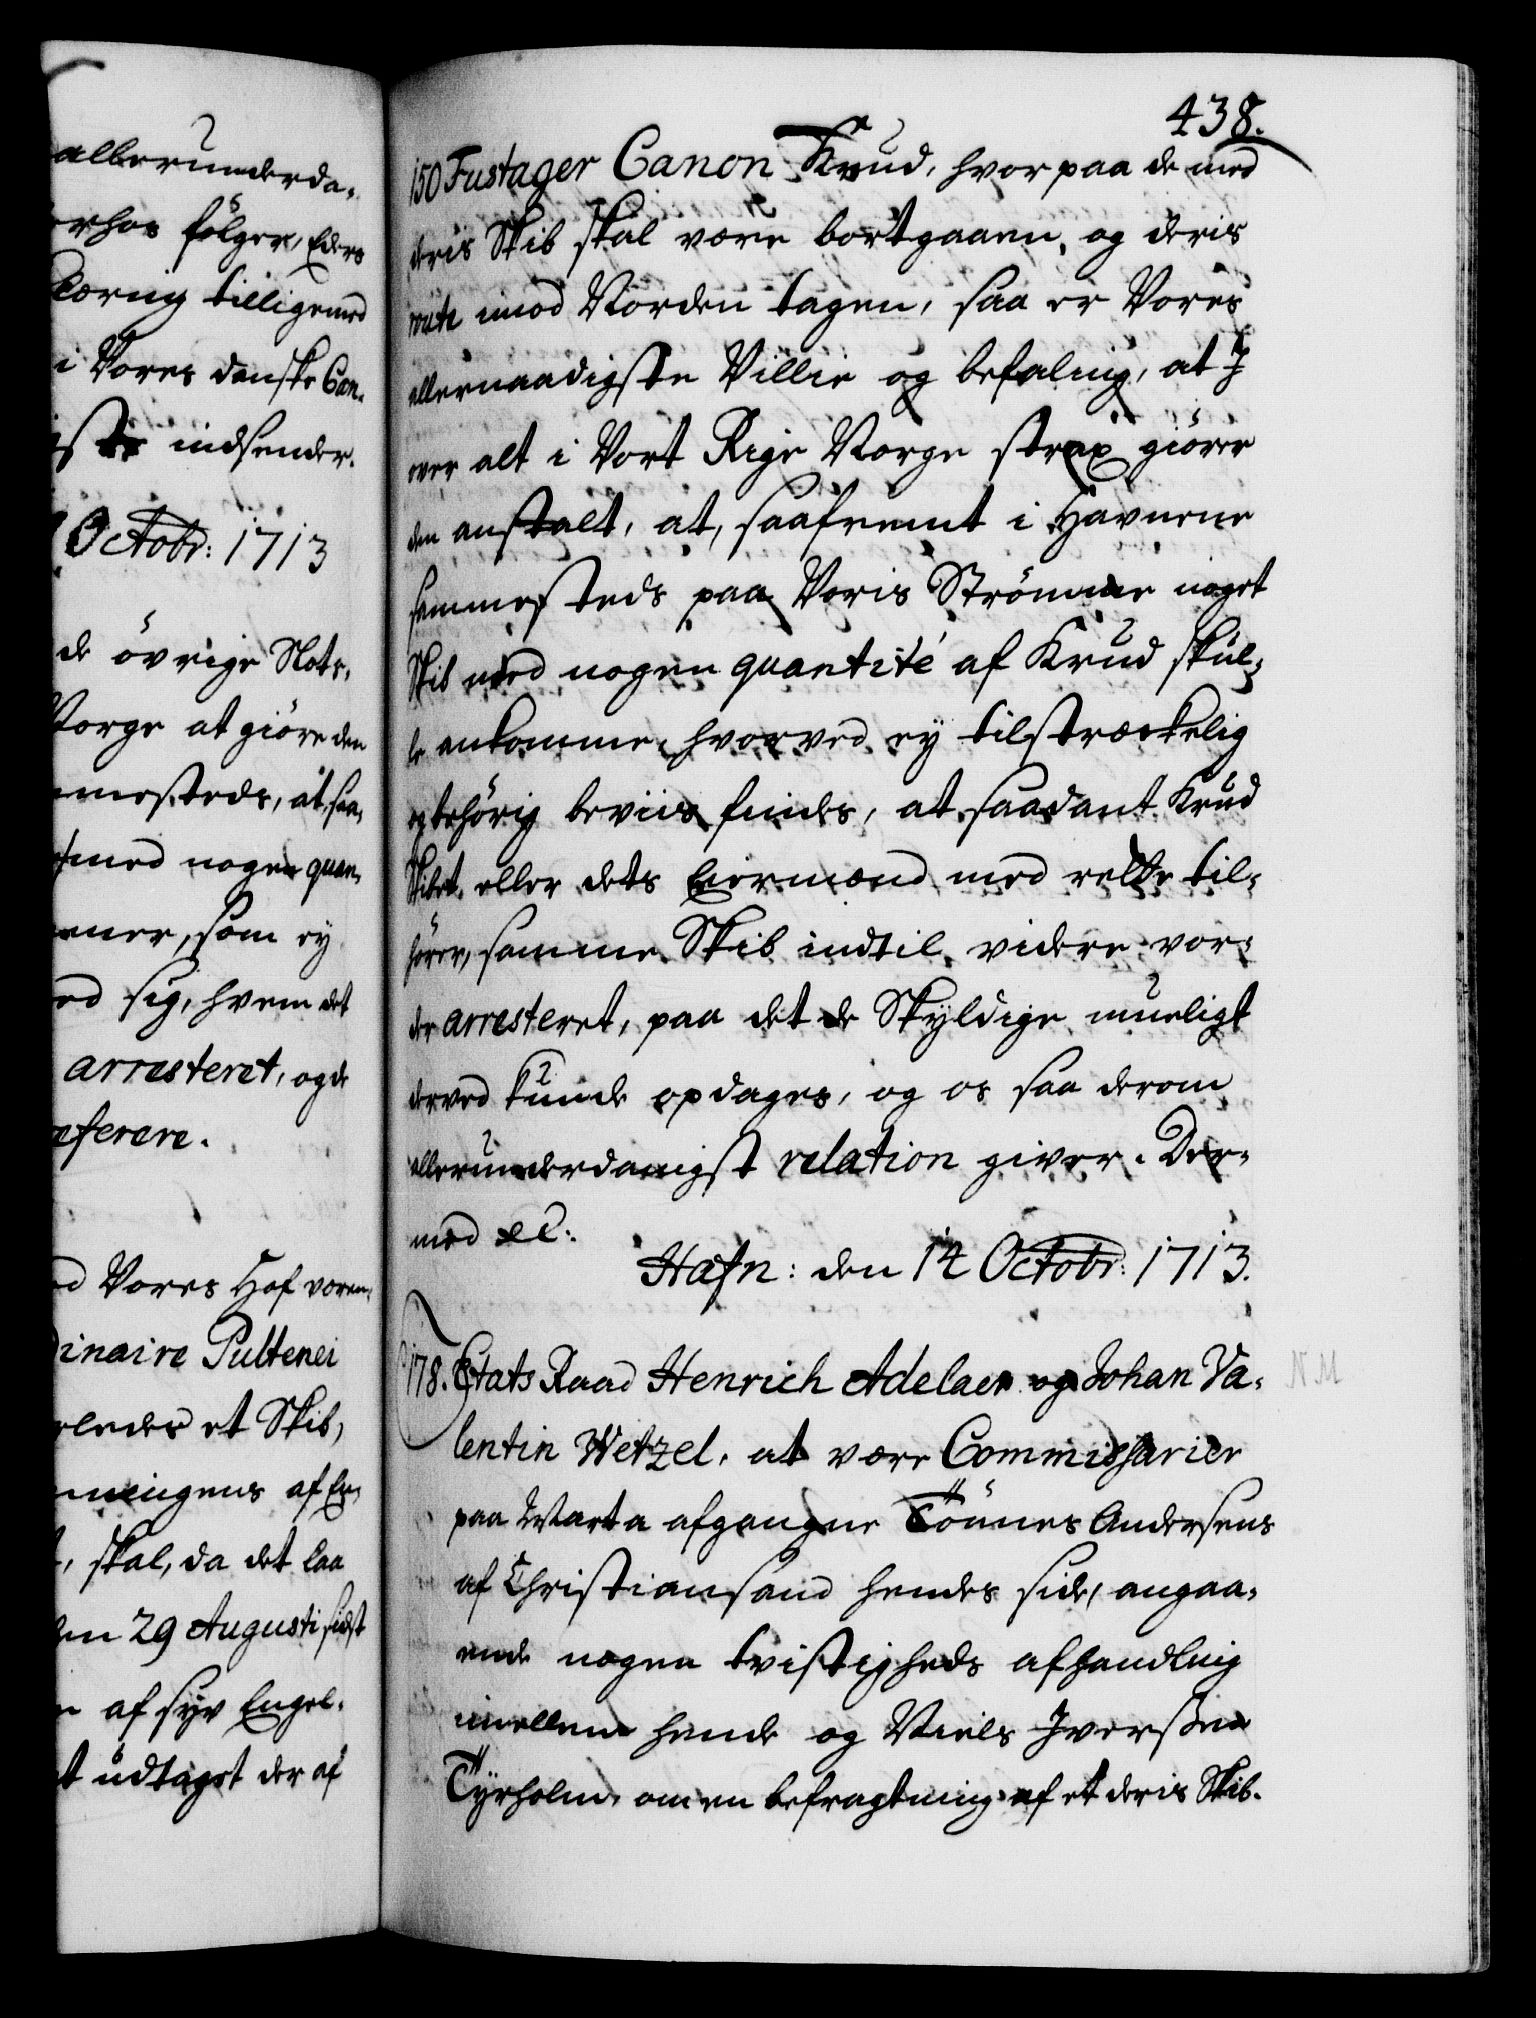 allerunderda-
erhos fölger, Eders
læring tilligemed
i Vores danske Can-
indsender.
Octobr: 1713
de övrige Slots-
Norge at giöre den
mmesteds, at saa-
med nogen quan-
som ey
ed sig, hvem det
arresteret, og de
referere.
ed Vores Hof væren-
dinaire Pultenei
erledes et Skib,
af En-
skal, da det laa
en 29 Augusti sidst
af syv Engel-
t udtaget der af
438.
150 Fustager Canon Krud, hvor paa de med
deris Skib skal være bortgaaen, og deris
route imod Norden tagen, saa er Vores
allernaadigste Villie og befaling, at I
over alt i Vort Rige Norge strax giörer
den anstalt, at, saafremt i Havnene
sammesteds paa Voris Strömme noget
Skib med nogen quantité af Krud skul-
le ankomme, hvorved ey tilstræckelig
og behörig beviis findes, at saadant Krud
Skibet eller dets Eiermænd med rette til-
hörer, samme Skib indtil videre vor-
der arresteret, paa det de Skyldige mueligt
derved kunde opdages, og os saa derom
allerunderdanigst relation giver. Der-
med etc:
Hafn: den 14 Octobr: 1713.
178. Etats Raad Henrich Adelaer og Johan Va-
lentin Wetzel, at være Commissarier
paa Marta afgangne Tönnes Andersens
af Christiansand hendes side, angaa-
ende nogen tvistigheds afhandling
imellem hende og Niels Iversen
Tyrholm, om en befragtning af et deris Skib.
N M